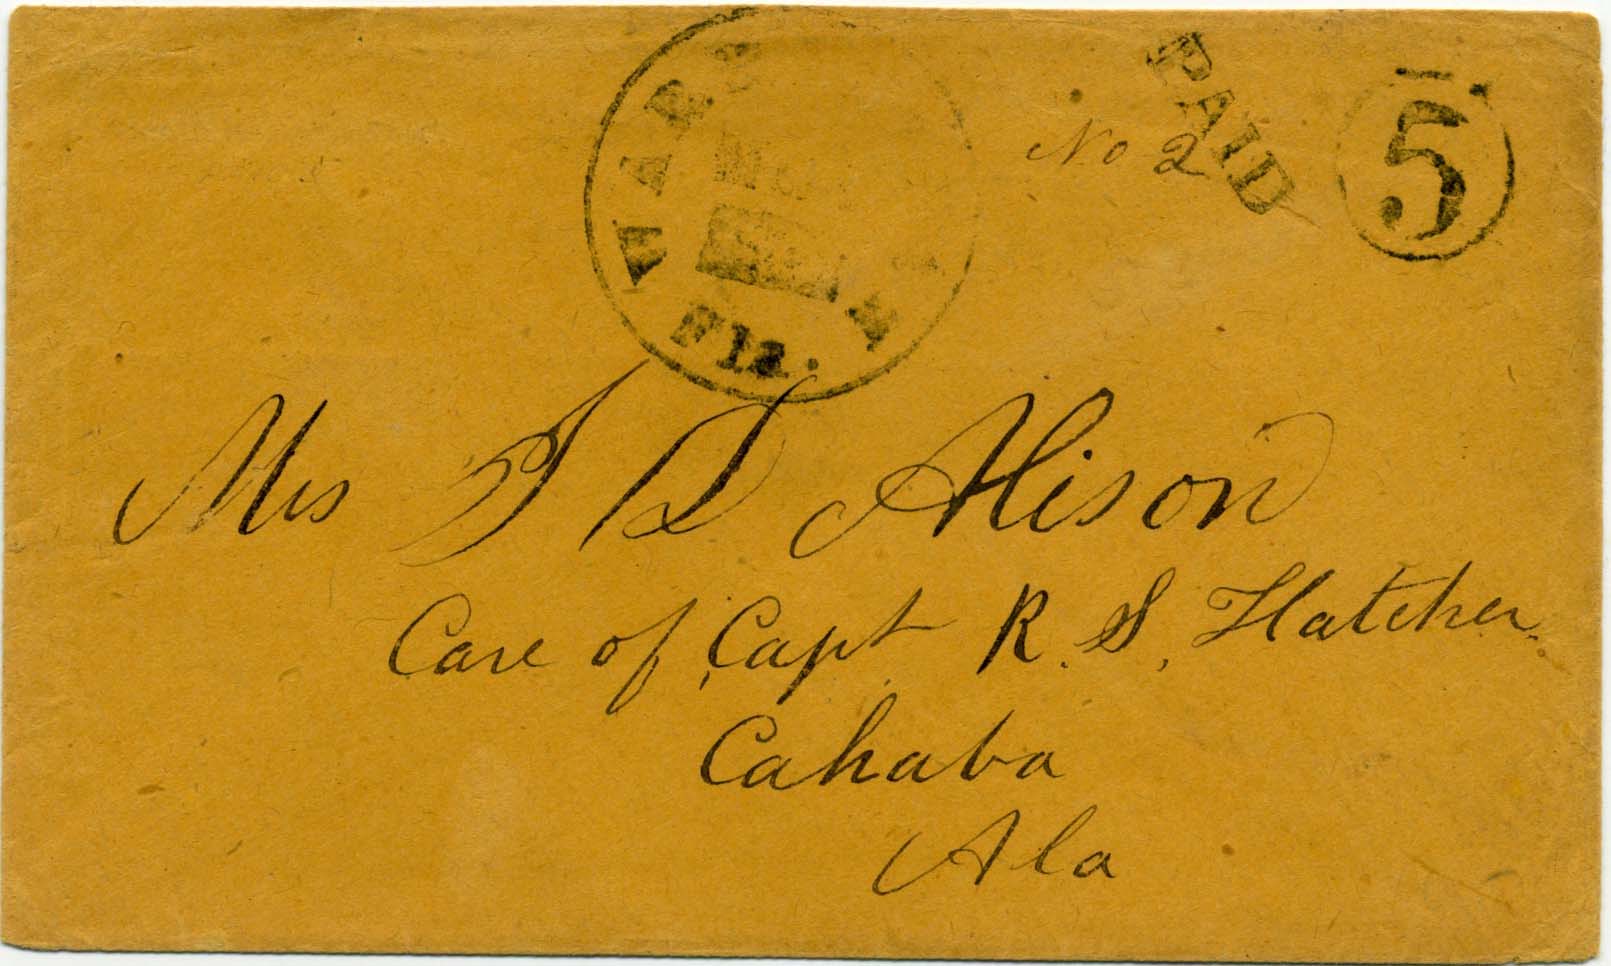 WAR
Fla.
No 2
PAID
5
Mrs J D Alison
Care of Capt R. S. Hatcher.
Cahaba
Ala